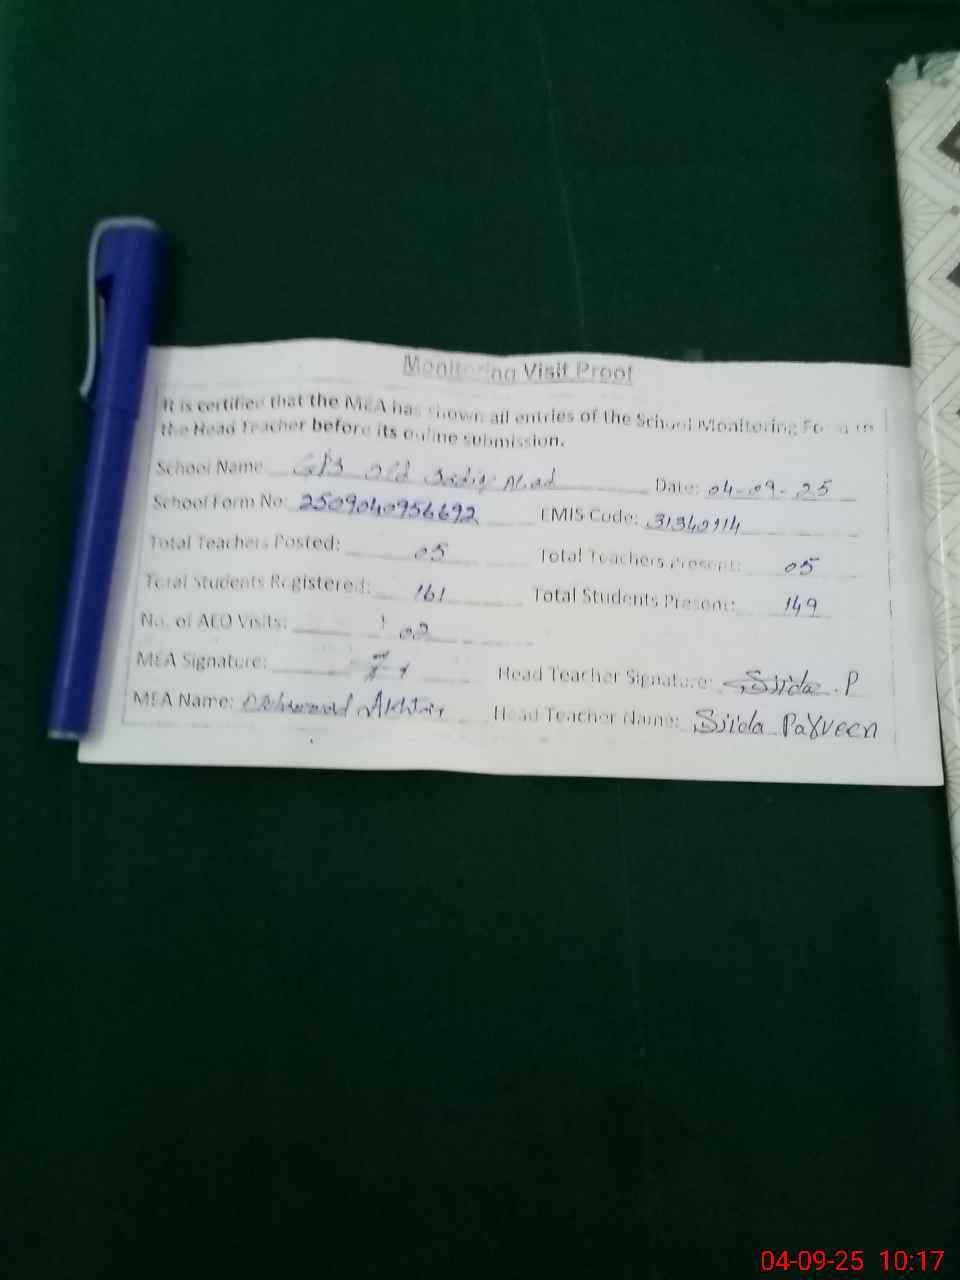 Monitoring Visit Proof
It is certified that the MEA has shown all entries of the School Monitoring Form to
the Head Teacher before its online submission.
School Name Old Sadiq Abad Date: 04-09-25
School Form No: 2509040956692 EMIS Code: 31340114
Total Teachers Posted: 05 Total Teachers Present: 05
Total Students Registered: 161 Total Students Present: 149
No. of AEO Visits: 02
MEA Signature: Head Teacher Signature: Sjida.P
MEA Name: Akhtar Head Teacher Name: Sjida Parveen
04-09-25 10:17